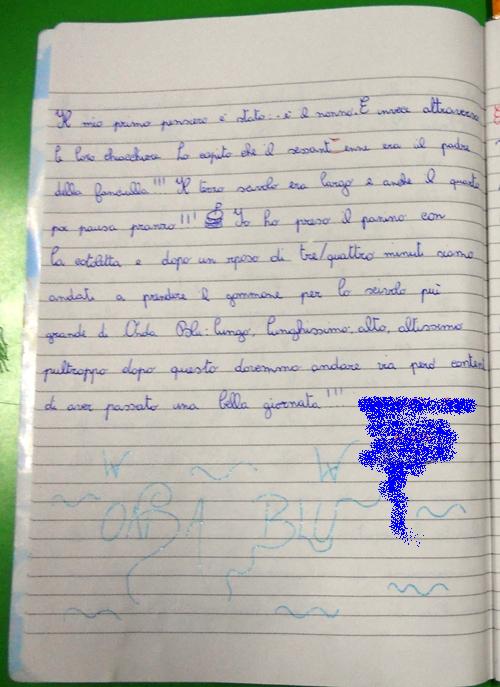 Il mio primo pensiero è stato... è il nonno. E invece attraverso
le loro chiacchiere ho capito che il sessant enne era il padre
della fanciulla!!! Il terzo scivolo era largo e anche il quarto
poi pausa pranzo!!! Io ho preso il panino con
la cotoletta e dopo un riposo di tre/quattro minuti siamo
andati a prendere il gommone per lo scivolo più
grande di Onda Blu: lungo, lunghissimo, alto, altissimo
pultroppo dopo questo doremmo andare via però content
di aver passato una bella giornata!!!
W W
ONDA BLU